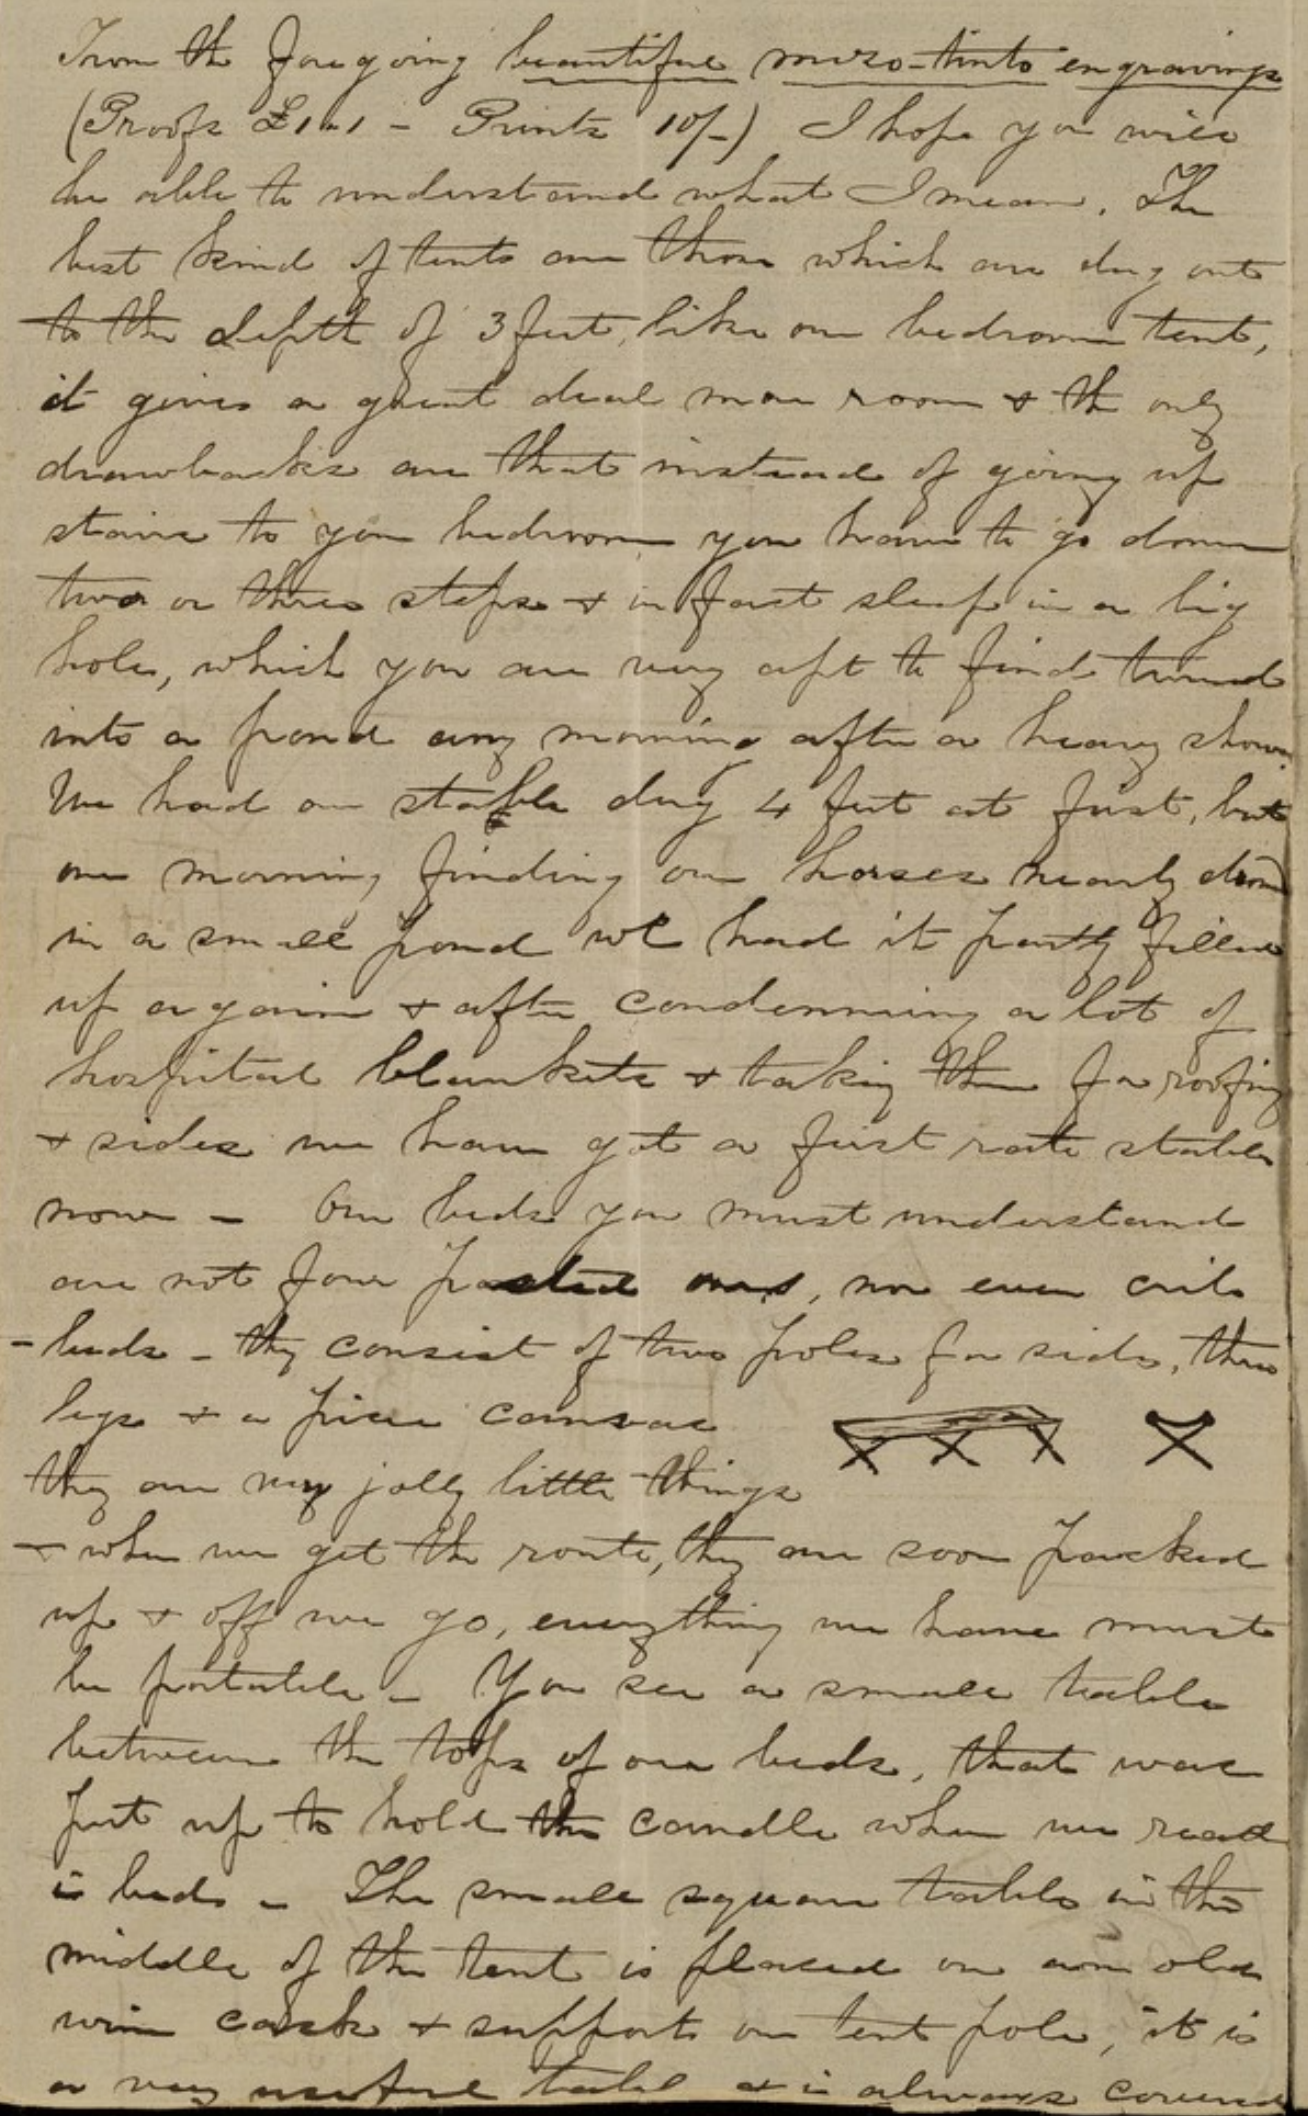 From the foregoing beautiful mezo-tinto engravings
(Proofs £1 " 1 - Prints 10/-) I hope you will
be able to understand what I mean. The
best kind of tents are those which are dug out
to the depth of 3 feet, like our bedroom tent,
it gives a great deal more room & the only
drawbacks are that instead of going up
stairs to your bedroom you have to go down
two or three steps & in fact sleep in a big
hole, which you are very apt to find turned
into a pond any morning after a heavy shower.
We had our stable dug 4 feet at first, but
one morning finding our horses nearly
in a small pond we had it partly filled
up again & after condemning a lot of
hospital blankets & taking them for roofing
& sides we have got a first rate stable
now - Our beds you must understand
are not four posted ones, nor even crib
-beds - they consist of two poles for sides, three
legs & a piece canvas
they are very jolly little things
& when we get the route, they are soon packed
up & off we go, everything we have must
be portable - You see a small table
between the tops of our beds, that was
put up to hold the candle when we read
in bed - The small square table in the
middle of the tent is placed on an old
wine cask & supports our tent pole, it is
a very useful table & is always covered